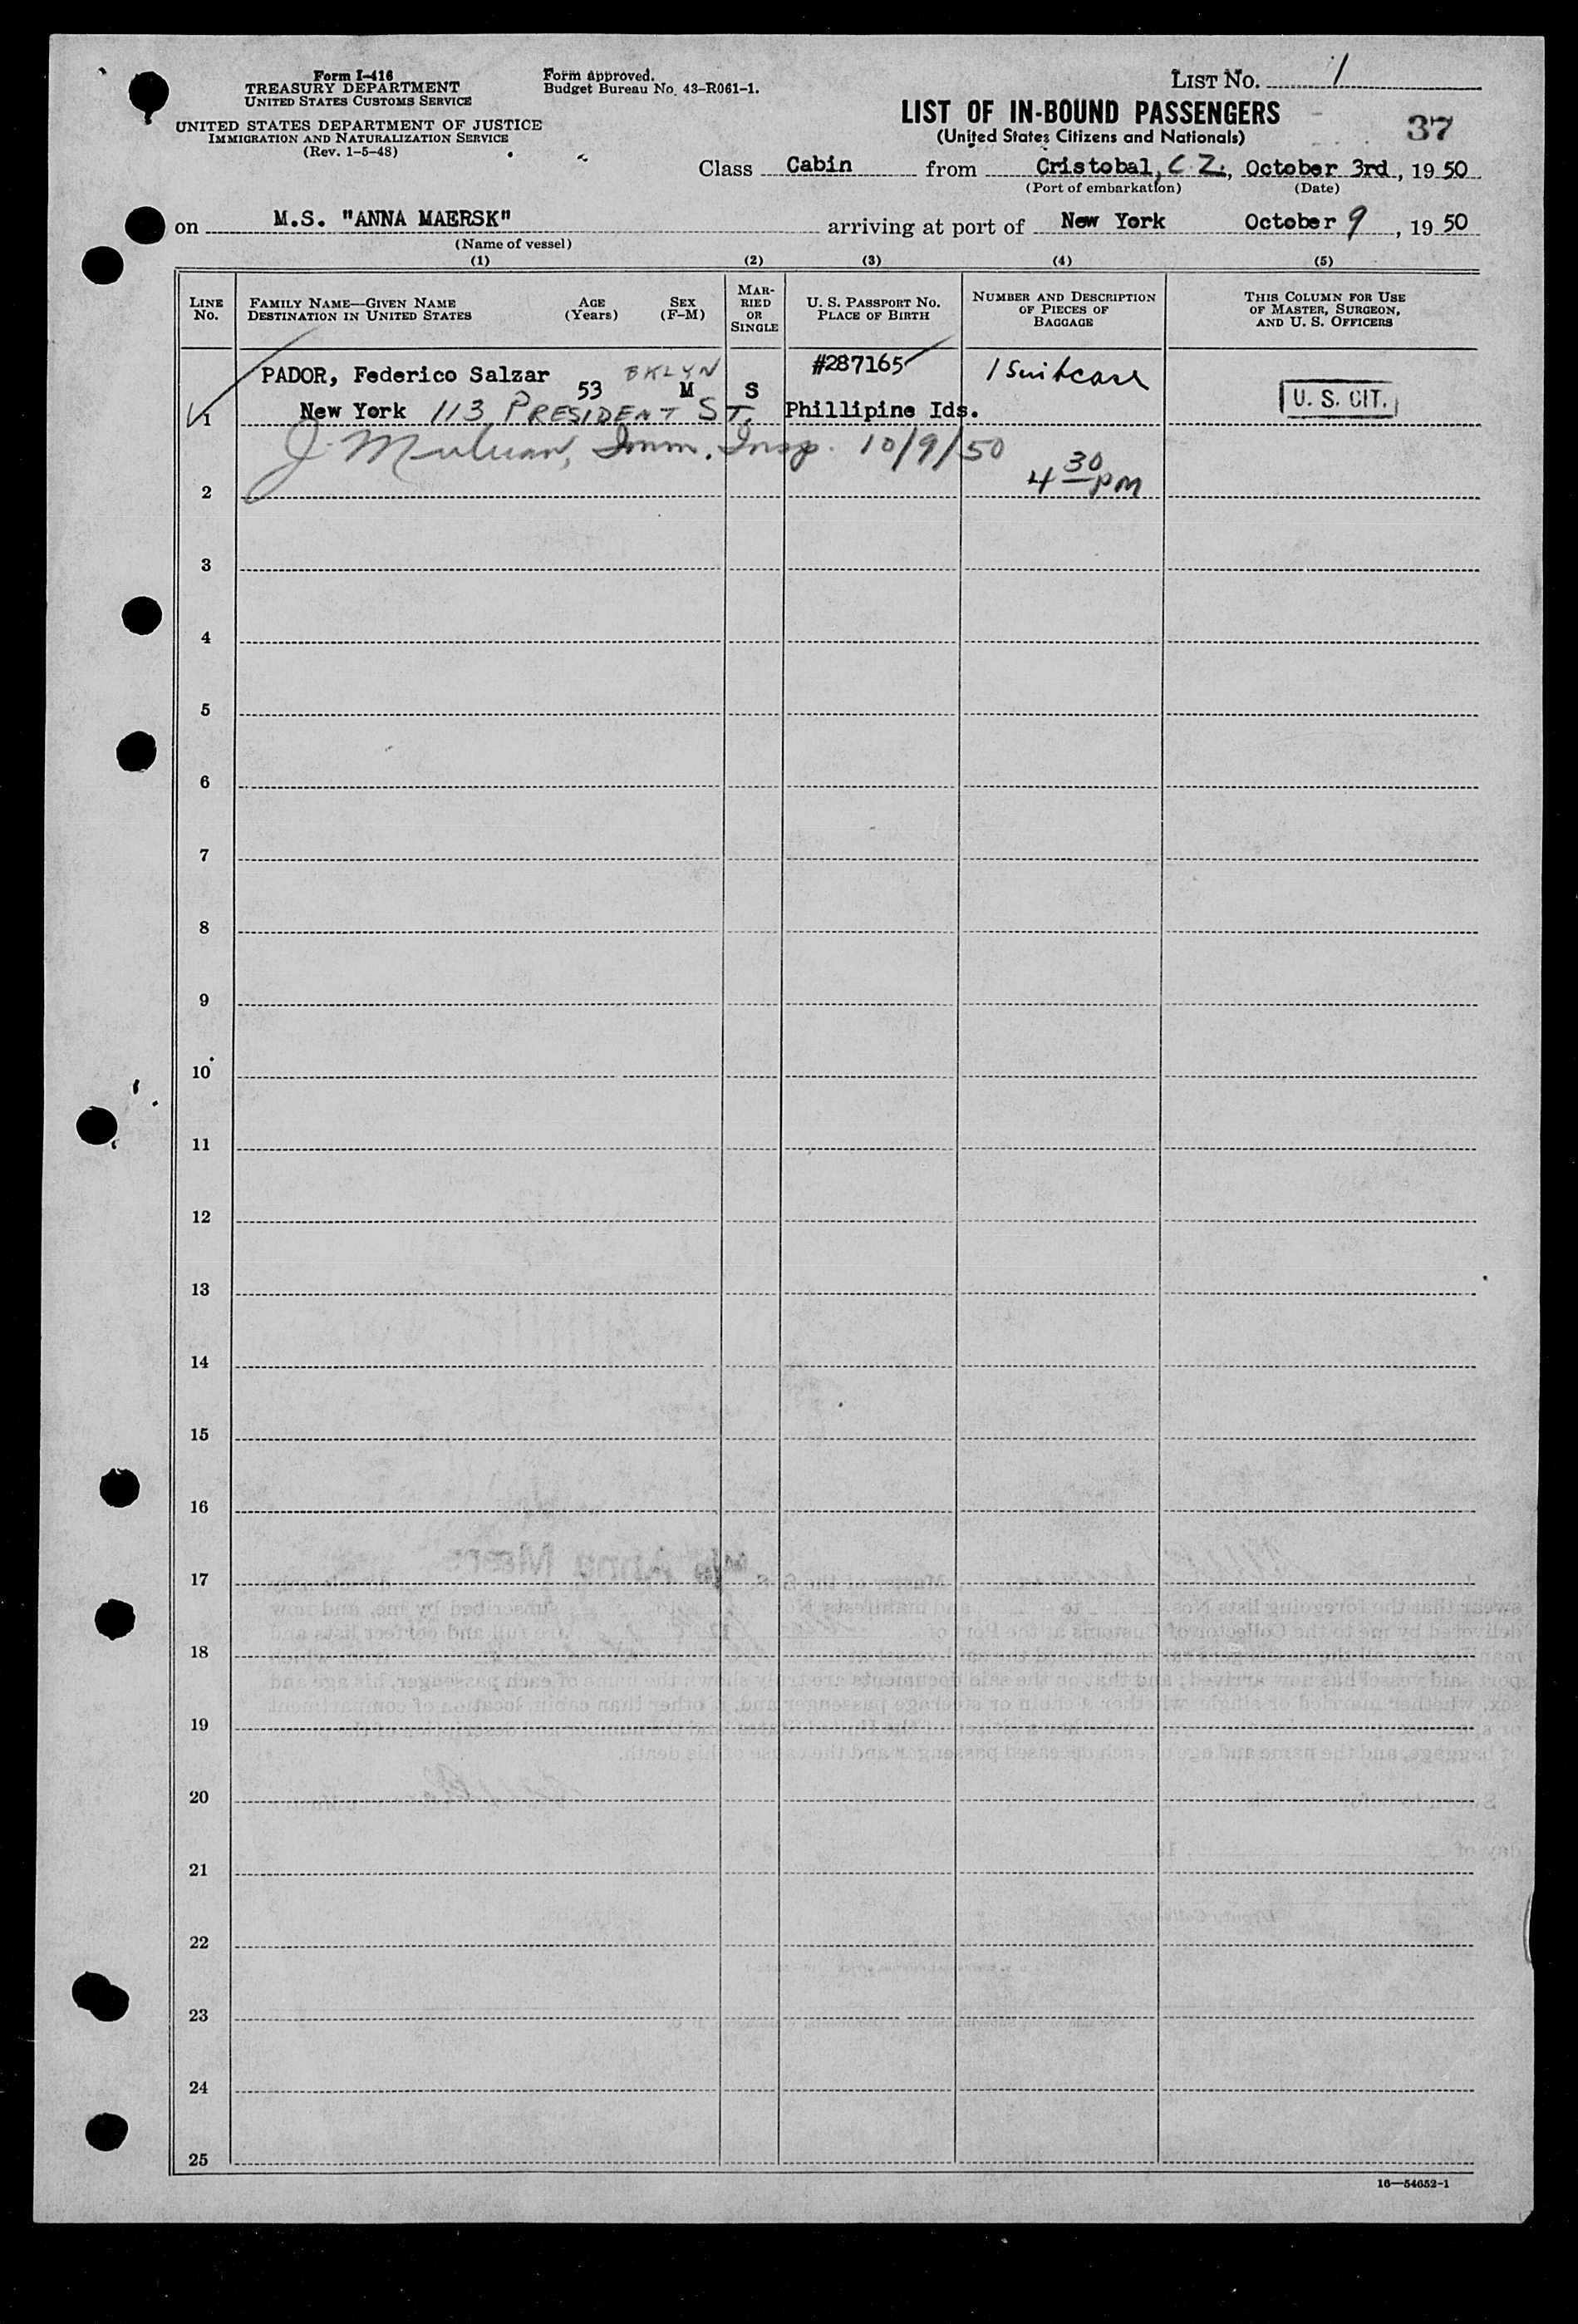 Form I-416
TREASURY DEPARTMENT
UNITED STATES CUSTOMS SERVICE
UNITED STATES DEPARTMENT OF JUSTICE
IMMIGRATION AND NATURALIZATION SERVICE
(Rev. 1-5-48)
Form approved.
Budget Bureau No. 43-R061-1.
LIST No. 1
LIST OF IN-BOUND PASSENGERS
(United States Citizens and Nationals)
37
Class Cabin from Cristobal, C.Z., October 3rd, 1950
(Port of embarkation) (Date)
on M.S. "ANNA MAERSK" arriving at port of New York October 9, 1950
(Name of vessel)
(1) (2) (3) (4) (5)
LINE No.
FAMILY NAME—GIVEN NAME
DESTINATION IN UNITED STATES
AGE (Years)
SEX (F-M)
MAR-
RIED
OR
SINGLE
U. S. PASSPORT No.
PLACE OF BIRTH
NUMBER AND DESCRIPTION
OF PIECES OF
BAGGAGE
THIS COLUMN FOR USE
OF MASTER, SURGEON,
AND U. S. OFFICERS
PADOR, Federico Salzar 53 BKLYN M S #287165 1 Suitcase U. S. CIT.
1 New York 113 PRESIDENT ST. Phillipine Ids.
J. Imm. Insp. 10/9/50
2 4 30 PM
3
4
5
6
7
8
9
10
11
12
13
14
15
16
17
18
19
20
21
22
23
24
25
16—54652-1